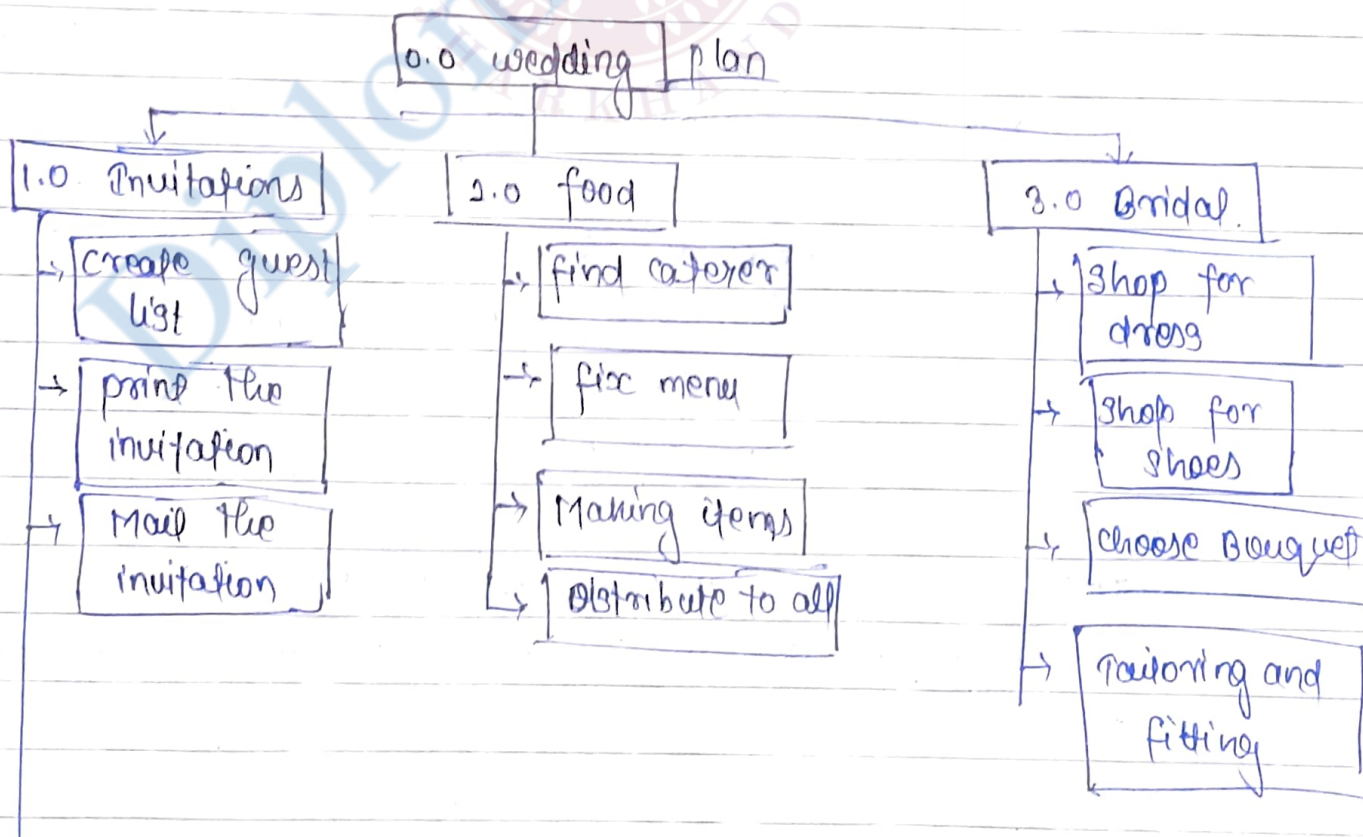 0.0 wedding plan
1.0 Invitations
create guest
list
print the
invitation
Mail the
invitation
2.0 food
find caterer
fix menu
Making items
Distribute to all
3.0 Bridal.
Shop for
dress
Shop for
shoes
choose Bouquet
Tailoring and
fitting
Diplom
ARKHAND